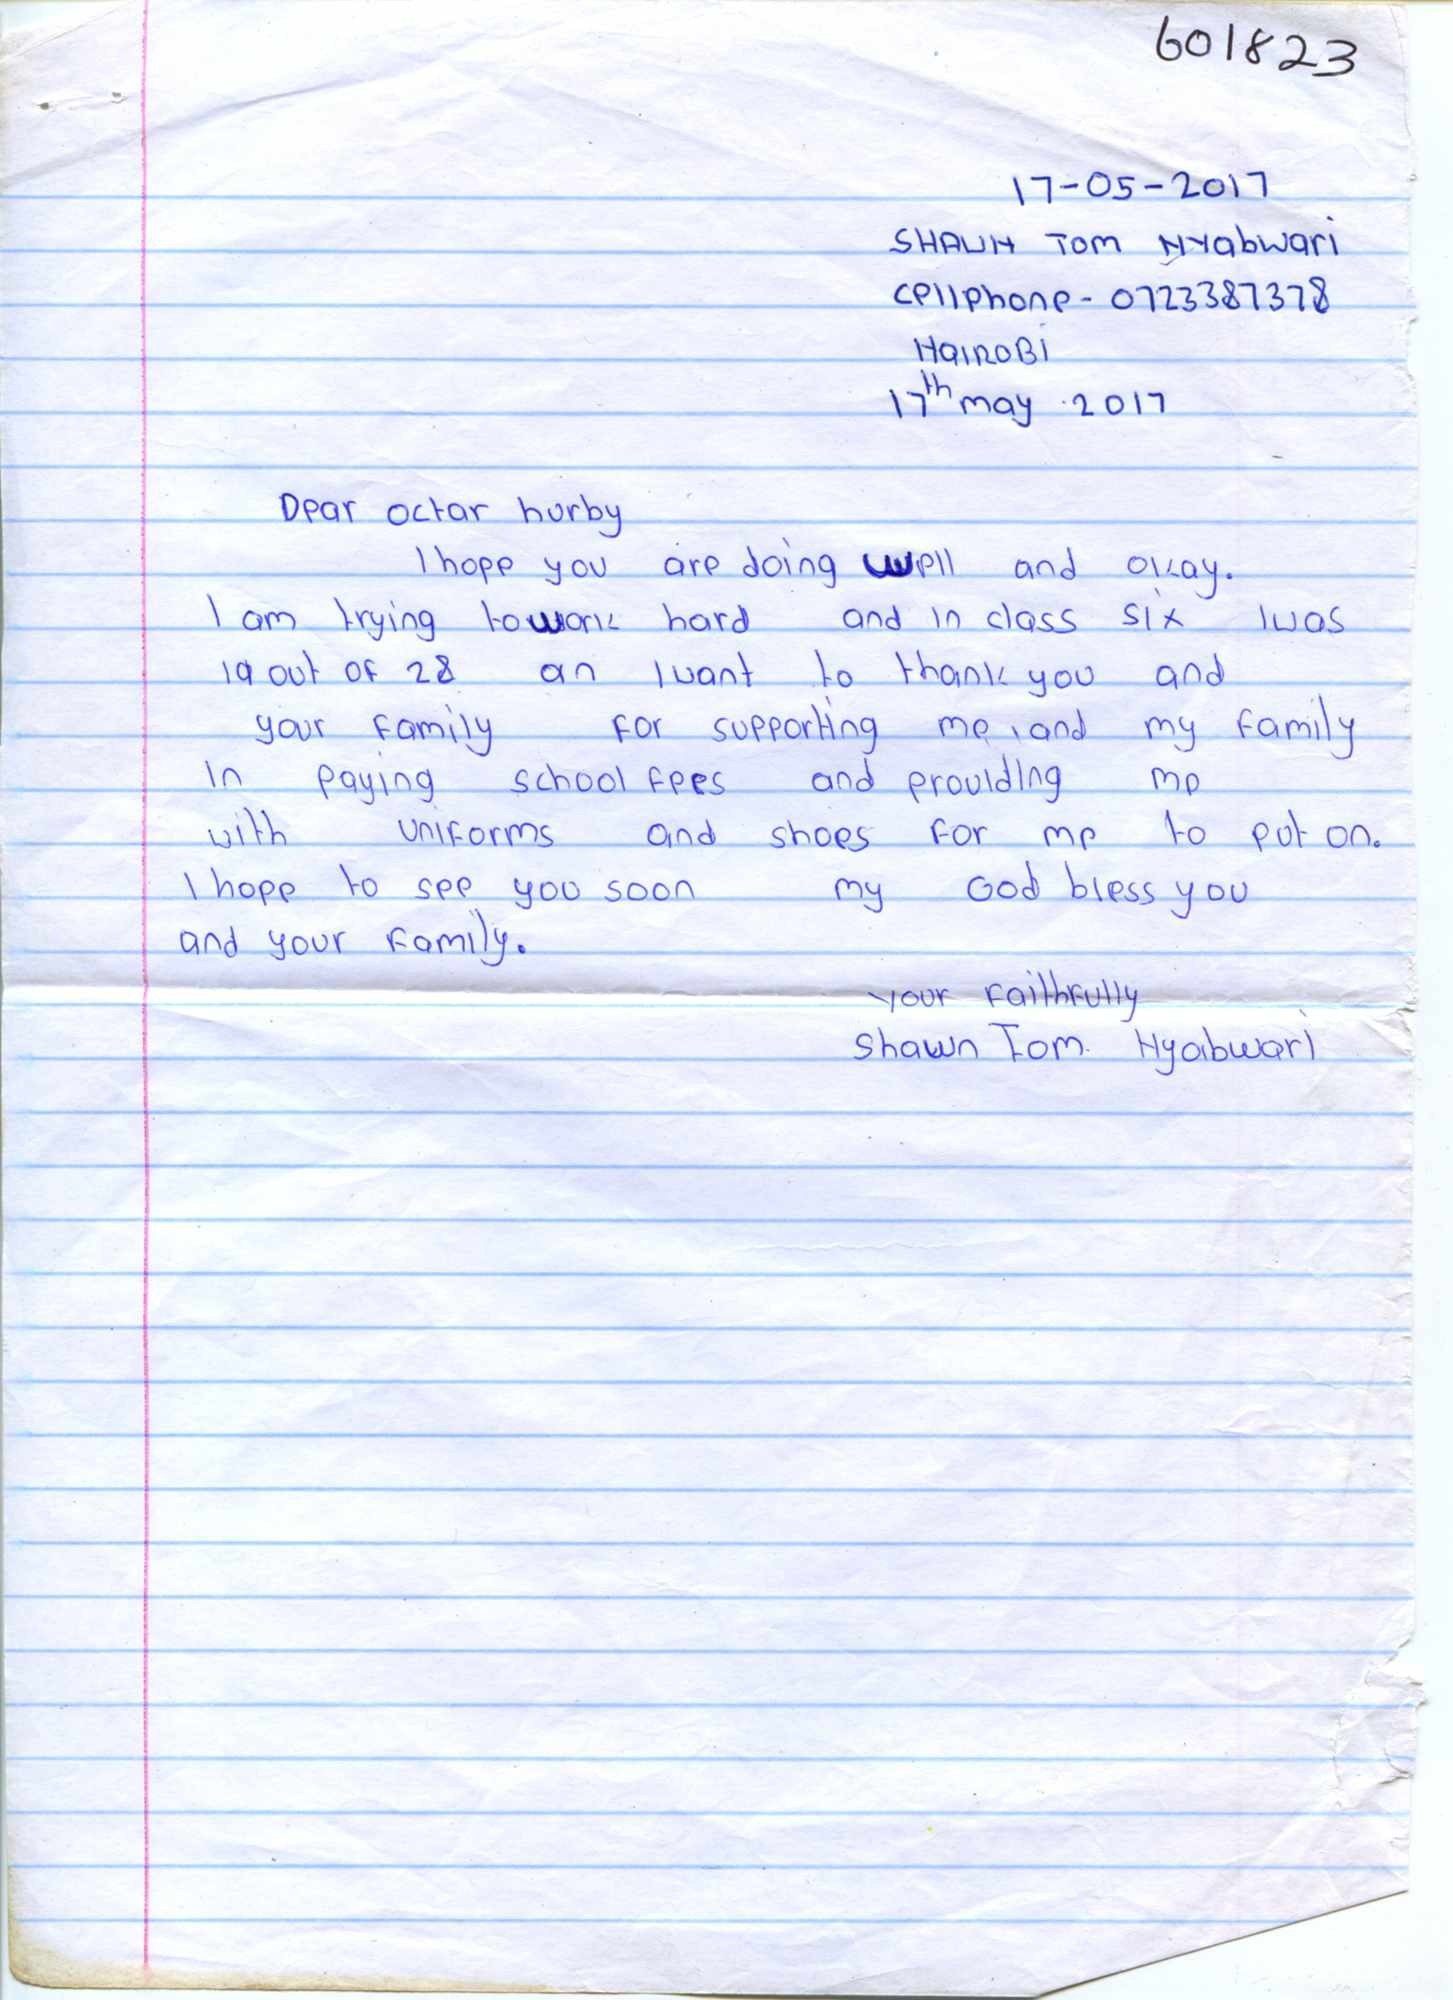 601823
17-05-2017
SHAUN TOM NYabwari
cellphone - 0723387378
NaiROBi
17th may 2017
Dear octar hurby
I hope you are doing well and okay.
I am trying to work hard and in class six I was
19 out of 28 an I want to thank you and
your family for supporting me, and my family
in paying school fees and providing me
with uniforms and shoes for me to put on.
I hope to see you soon my God bless you
and your family.
your faithfully
Shawn Tom. Nyabwari